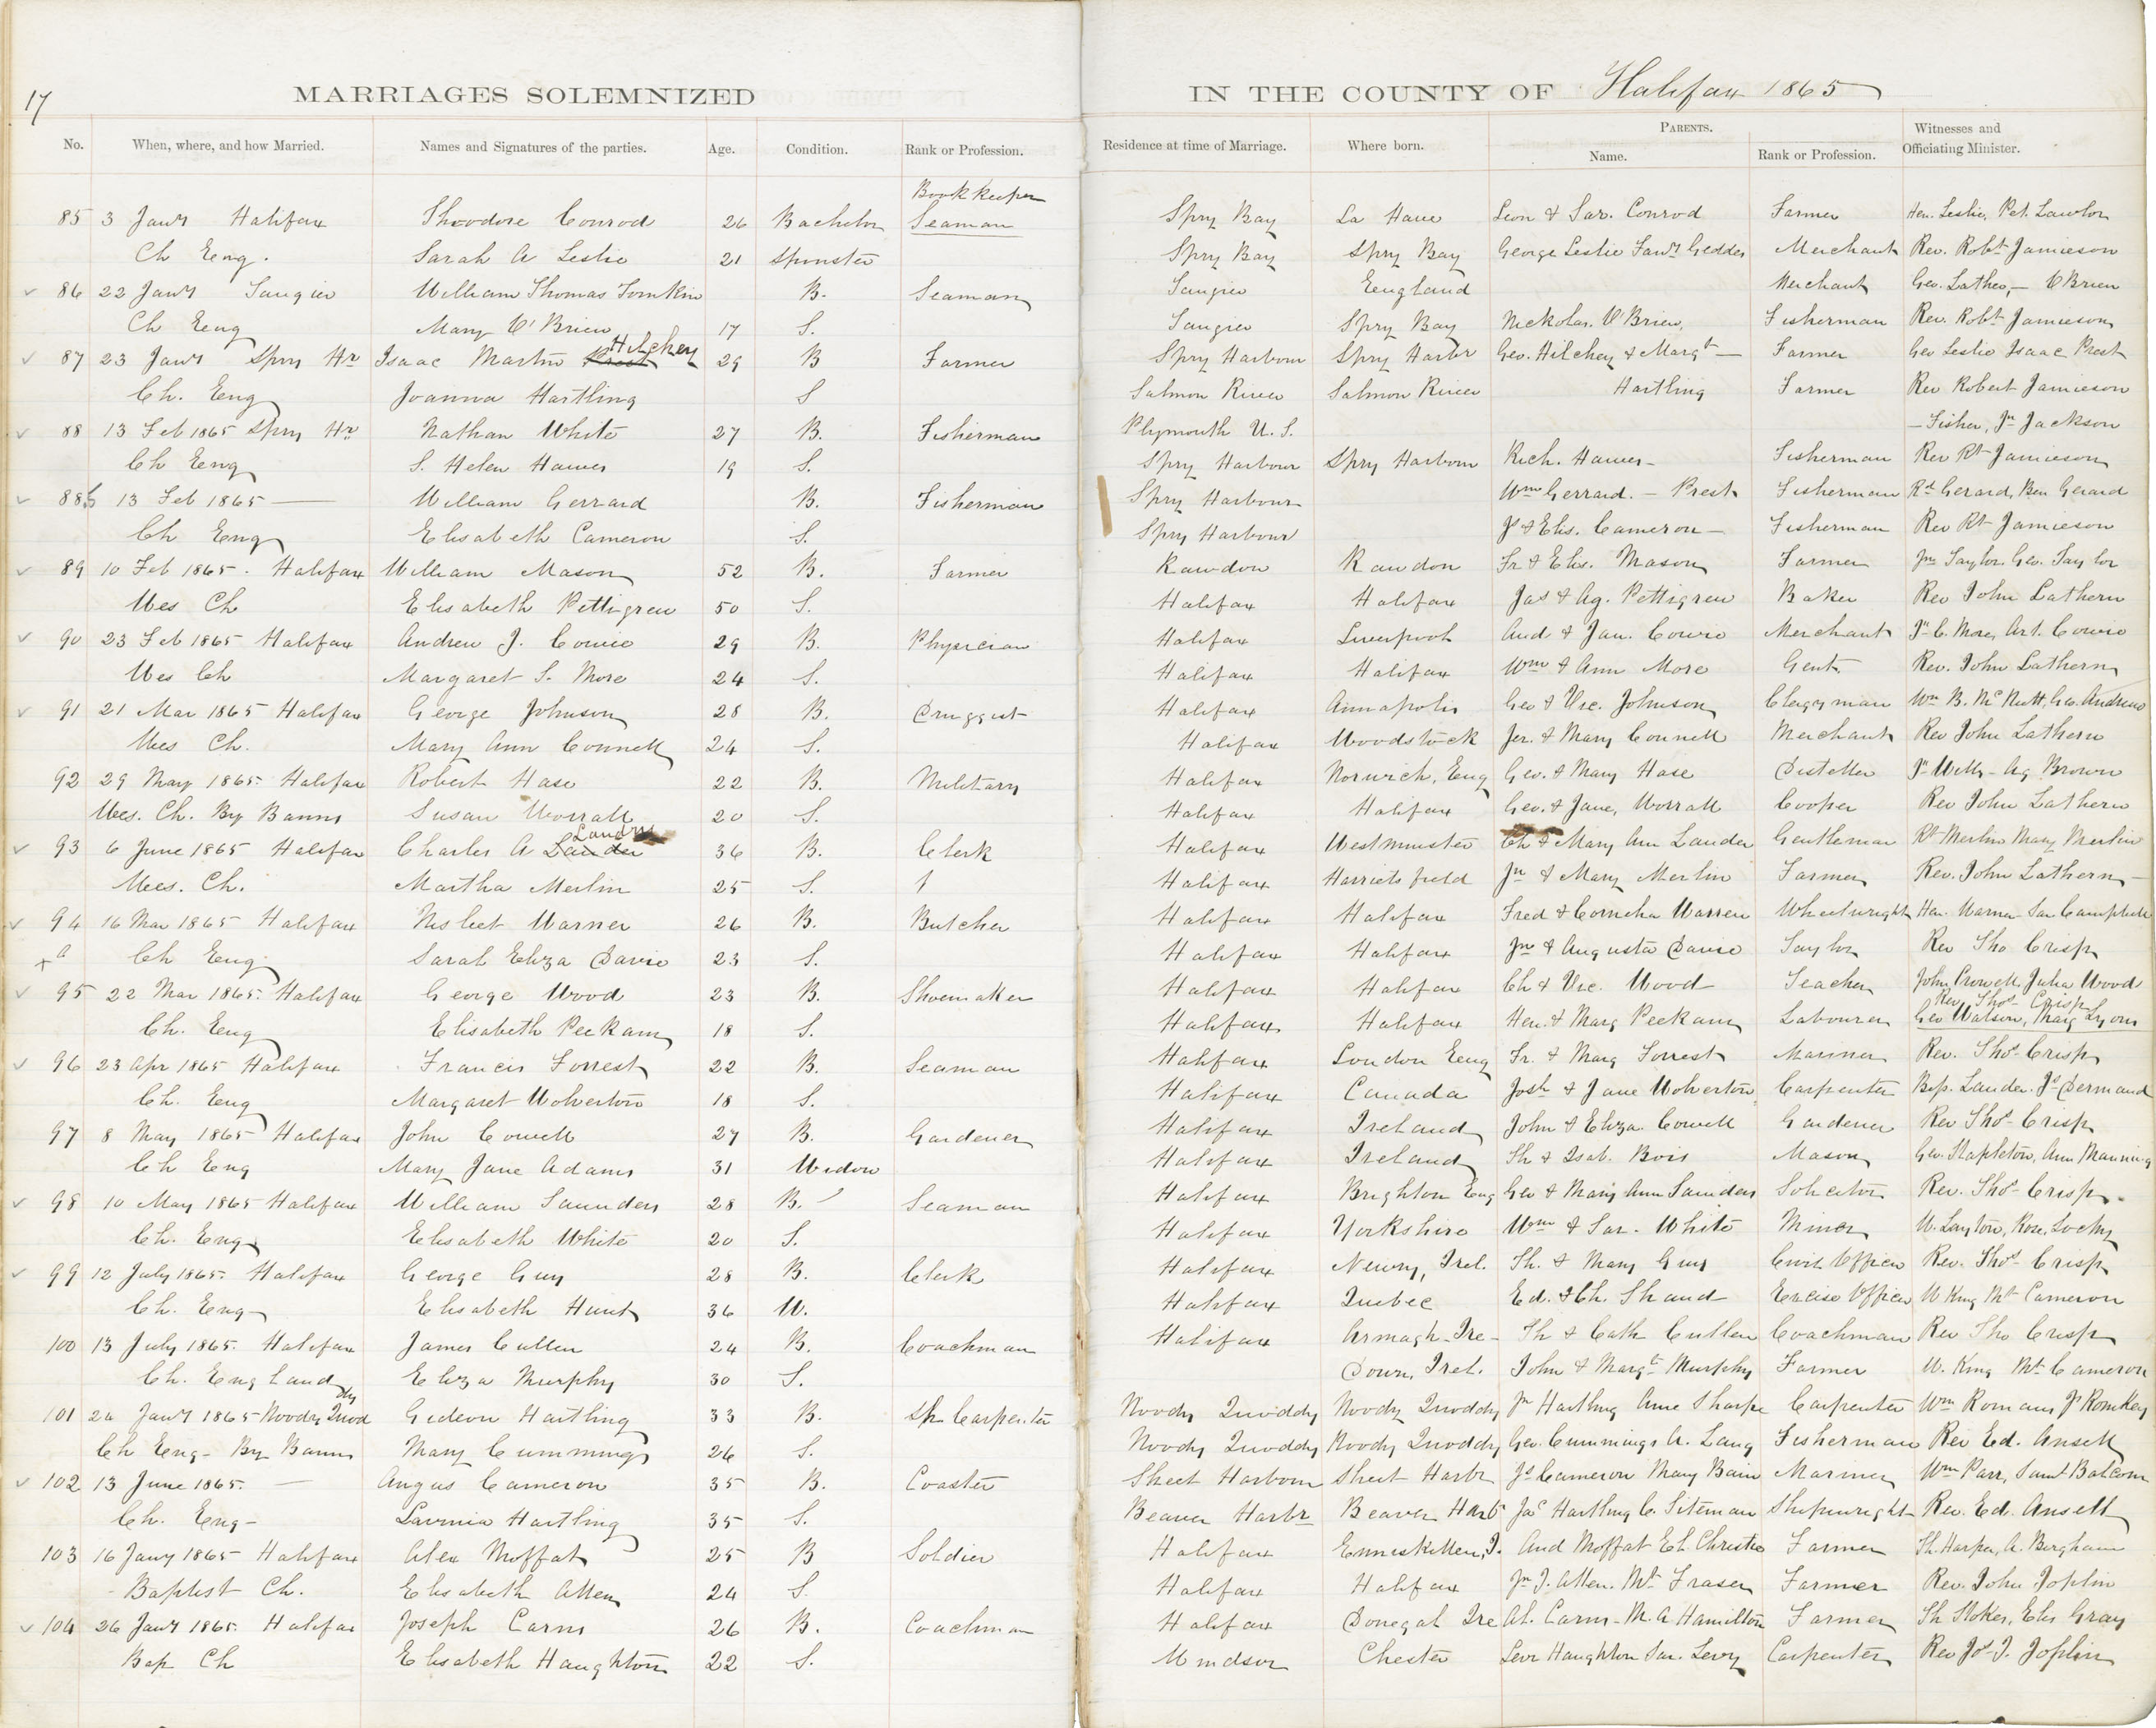 17
MARRIAGES SOLEMNIZED IN THE COUNTY OF Halifax 1865
PARENTS.
No. When, where, and how Married. Names and Signatures of the parties. Age. Condition. Rank or Profession. Residence at time of Marriage. Where born. Name. Rank or Profession. Witnesses and Officiating Minister.
Bookkeeper
85 3 Jany Halifax Theodore Conrod 26 Bachelor Seaman Spry Bay La Have Leon & Sar. Conrod Farmer Hen. Leslie, Pet. Lawlor
Ch Eng. Sarah A Leslie 21 Spinster Spry Bay Spry Bay George Leslie Geddes Merchant Rev. Robt Jamieson
86 22 Jany Tangier William Thomas Tomkin B. Seaman Tangier England Merchant Geo. Lathes, — O'Brien
Ch Eng Mary O'Brien 17 S. Tangier Spry Bay Nickolas. O'Brien, Fisherman Rev. Robt Jamieson
87 23 Jany Spry Hr Isaac Martin Prest Hilchey 29 B Farmer Spry Harbour Spry Harbr Geo. Hilchey & Margt — Farmer Geo Leslie Isaac Prest
Ch. Eng Joanna Hartling S Salmon River Salmon River Hartling Farmer Rev Robert Jamieson
88 13 Feb 1865 Spry Hr Nathan White 27 B. Fisherman Plymouth U. S. — Fisher, Jn Jackson
Ch Eng S. Helen Hawes 19 S. Spry Harbour Spry Harbour Rich. Hawes — Fisherman Rev Rt Jamieson
88½ 13 Feb 1865 — William Gerrard B. Fisherman Spry Harbour Wm Gerrard. — Prest Fisherman Rd Gerard, Ben Gerard
Ch Eng Elisabeth Cameron S. Spry Harbour Js & Elis. Cameron — Fisherman Rev Rt Jamieson
89 10 Feb 1865. Halifax William Mason 52 B. Farmer Rawdon Rawdon Fr & Elis. Mason Farmer Jno Taylor Geo. Taylor
Wes Ch Elisabeth Pettigrew 50 S. Halifax Halifax Jas & Ag. Pettigrew Baker Rev John Lathern
90 23 Feb 1865 Halifax Andrew J. Cowie 29 B. Physician Halifax Liverpool And & Jan. Cowie Merchant Jn C. More, Art. Cowie
Wes Ch Margaret S. More 24 S. Halifax Halifax Wm & Ann More Gent. Rev. John Lathern
91 21 Mar 1865 Halifax George Johnson 28 B. Druggist Halifax Annapolis Geo & Vic. Johnson Clergyman Wm B. McNutt, Geo. Andrews
Wes Ch. Mary Ann Connell 24 S. Halifax Woodstock Jer. & Mary Connell Merchant Rev John Lathern
92 29 May 1865. Halifax Robert Hase 22 B. Military Halifax Norwich, Eng Geo. & Mary Hase Distiller Jn Wills - Ag Brown
Wes. Ch. By Banns Susan Worrall 20 S. Halifax Halifax Geo. & Jane, Worrall Cooper Rev John Lathern
93 6 June 1865 Halifax Charles A Lauder 36 B. Clerk Halifax Westminster Ch & Mary Ann Lauder Gentleman Rt Merlin Mary Merlin
Wes. Ch. Martha Merlin 25 S. Halifax Harrietsfield Jn & Mary Merlin Farmer Rev. John Lathern
94 16 Mar 1865 Halifax Nisbet Warner 26 B. Butcher Halifax Halifax Fred & Cornelia Warren Wheelwright Hen. Warner Sar Campbell
+ a Ch Eng. Sarah Eliza Davie 23 S. Halifax Halifax Jno & Augusta Davie Taylor Rev Tho Crisp
95 22 Mar 1865. Halifax George Wood 23 B. Shoemaker Halifax Halifax Ch & Vic. Wood Teacher John Crowell, Julia Wood
Rev. Thos Crisp
Ch. Eng Elisabeth Peekam 18 S. Halifax Halifax Hen. & Marg Peekam Labourer Geo Watson, Marg Lyons
96 23 Apr 1865 Halifax Francis Forrest 22 B. Seaman Halifax London Eng Fr. & Marg Forrest Mariner Rev. Thos Crisp
Ch. Eng Margaret Wolverton 18 S. Halifax Canada Josh & Jane Wolverton Carpenter Lauder. Js Dermand
97 8 May 1865 Halifax John Cowell 27 B. Gardener Halifax Ireland John & Eliza. Cowell Gardener Rev Thos Crisp
Ch Eng Mary Jane Adams 31 Widow Halifax Ireland Th & Isab. Bois Mason Geo. Stapleton, Ann Manning
98 10 May 1865 Halifax William Saunders 28 B. Seaman Halifax Brighton Eng Geo & Mary Ann Saunders Solicitor Rev. Thos Crisp.
Ch. Eng Elisabeth White 20 S. Halifax Yorkshire Wm & Sar. White Miner W. Layton, Rose, Locky
99 12 July 1865. Halifax George Guy 28 B. Clerk Halifax Newry, Irel. Th. & Mary Guy Civil Officer Rev. Thos Crisp
Ch. Eng Elisabeth Hunt 36 W. Halifax Quebec Ed. & Ch. Shand Excise Officer W King Mt Cameron
100 13 July 1865. Halifax James Cullen 24 B. Coachman Halifax Armagh Ire - Th & Cath Cullen Coachman Rev Tho Crisp
Ch. England Eliza Murphy 30 S. Down, Irel. John & Margt Murphy Farmer W. King Mt Cameron
101 24 Jany 1865 Moody Quoddy Gideon Hartling 33 B. Sh. Carpenter Moody Quoddy Moody Quoddy Jn Hartling Ann Sharpe Carpenter Wm Romans Js Romkey
Ch Eng - By Banns Mary Cummings 26 S. Moody Quoddy Moody Quoddy Geo. Cummings A. Lang Fisherman Rev Ed. Ansell
102 13 June 1865. — Angus Cameron 35 B. Coaster Sheet Harbour Sheet Harbr Js Cameron Mary Bain Mariner Wm Parr, Saml Balcom
Ch. Eng - Lavinia Hartling 35 S. Beaver Harbr Beaver Harbr Jas Hartling C. Siteman Shipwright Rev. Ed. Ansell
103 16 Jany 1865 Halifax Alex Moffat 25 B Soldier Halifax Enniskillen, I. And Moffat El. Christie Farmer Th. Harper, A. Bingham
Baptist Ch. Elisabeth Allen 24 S. Halifax Halifax Jn J. Allen. Mt Fraser Farmer Rev. John Joplin
104 26 Jany 1865. Halifax Joseph Carns 26 B. Coachman Halifax Donegal Ire Al. Carns - M. A Hamilton Farmer Th Stokes, Elis Gray
Bap Ch Elisabeth Haughton 22 S. Windsor Chester Levi Haughton Sar. Levy Carpenter Rev Js J. Joplin